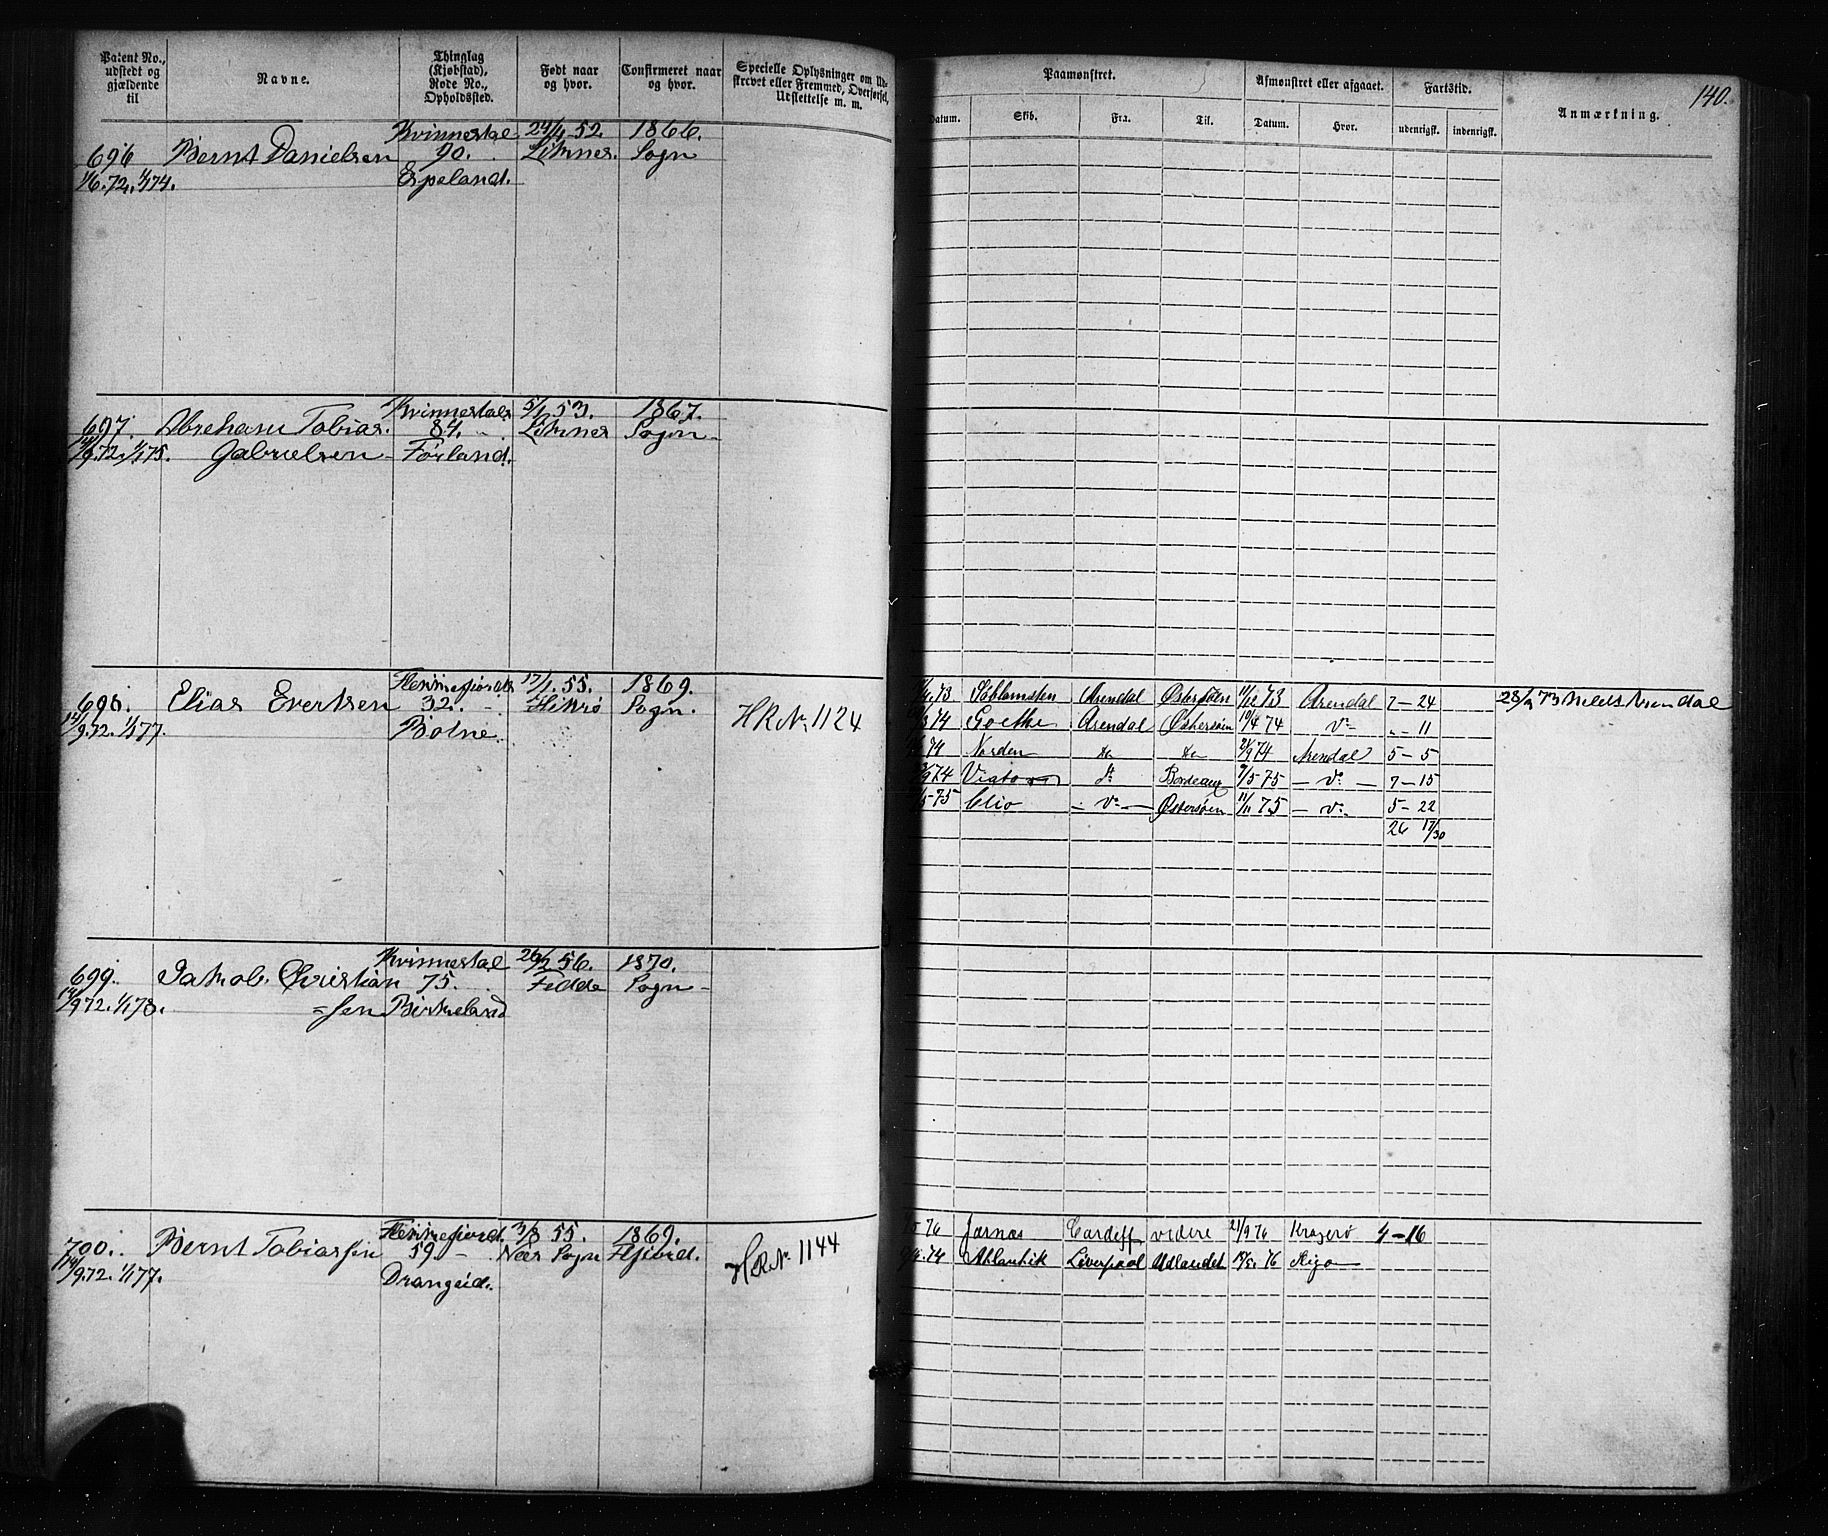 Patent No., udstedt og gjældende til
Navne.
Thinglag (Kjøbstad), Rode No., Opholdssted.
Født naar og hvor.
Confirmeret naar og hvor.
Specielle Oplysninger om Ud-
skrevet eller Fremmed, Overførsel,
Udslettelse m. m.
Paamønstret.
Datum.
Skib.
Fra.
Til.
Afmønstret eller afgaaet.
Datum.
Hvor.
Fartstid.
udenrigsk.
indenrigsk.
Anmærkning.
140.
Kvinnesdal 24/4 52. 1866.
696 Bernt Danielsen 90. Sogn
1/6.72. 1/1 74. Espeland.
Kvinnesdal 5/1 53. 1867.
697. Abraham Tobias. 84. Sogn
14/9.72. 1/1 75. Gabrielsen Førland.
17/1. 55. 1869. 1/4.73 Arendal Østersøen 11/12 73 Arendal 7-24
698. Elias Evertsen 32. Hitterø Sogn. HR No. 1124 74 Goethe Arendal Østersøen 10/4 74 Do „-11
14/9.72. 1/1 77. 74 Norden Do Do 21/9 74 Arendal 5-5
/9 74 Do Bordeaux 7/5 75 Do 7-15
/5 75 Clio Do Østersøen 11/11 75 Do 5-22
26 17/30
Kvinnesdal 26/2 56. 1870.
699. Jakob Christian 75. Fedde Sogn
14/9 72. 1/1 78. =sen Birkeland
3/8 55. 1869. 76 Jarnas Cardiff videre 21/9 76 Kragerø 4-16
700. Bernt Tobiassen 59 Næs Sogn HR No. 1144 74 Atlantik Liverpool Udlandet Riga
14/9.72. 1/1 77. Drangeid.